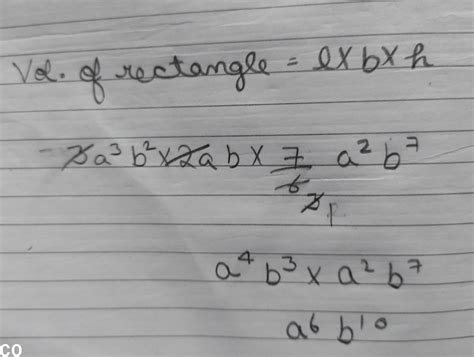 Vol. of rectangle = l x b x h
- 3a³ b² x 2 a b x 7/6 a² b⁷
3 1
a⁴ b³ x a² b⁷
a⁶ b¹⁰
CO